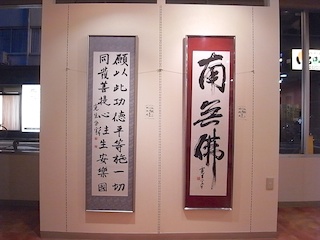 南無佛
願以此功德平等施一切
同發菩提心往生安樂國